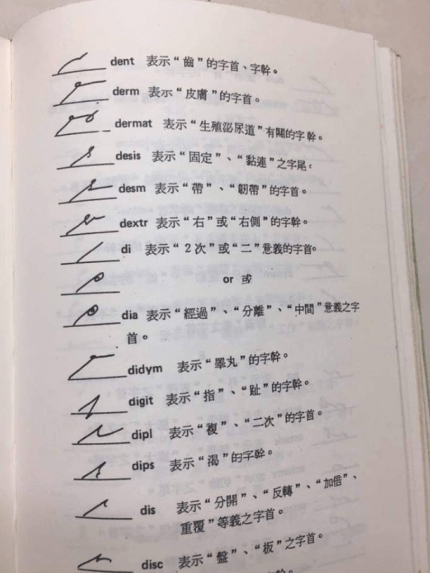 dent 表示“齒”的字首、字幹。
derm 表示“皮膚”的字首。
dermat 表示“生殖泌尿道”有關的字幹。
desis 表示“固定”、“黏連”之字尾。
desm 表示“帶”、“韌帶”的字首。
dextr 表示“右”或“右側”的字幹。
di 表示“2次”或“二”意義的字首。
or 或
dia 表示“經過”、“分離”、“中間”意義之字
首。
didym 表示“睪丸”的字幹。
digit 表示“指”、“趾”的字幹。
dipl 表示“複”、“二次”的字首。
dips 表示“渴”的字幹。
dis 表示“分開”、“反轉”、“加倍”、
重覆”等義之字首。
disc 表示“盤”、“板”之字首。